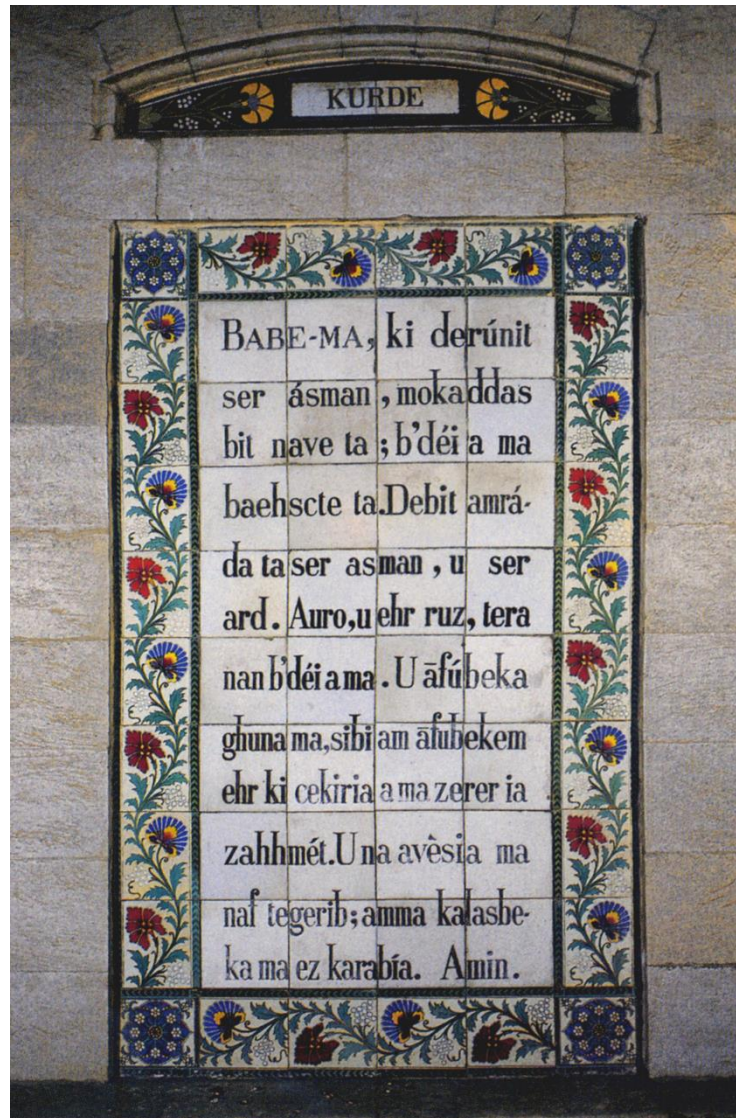 KURDE
BABE-MA, ki derúnit
ser ásman, mokaddas
bit nave ta; b'déi a ma
baehscte ta. Debit amrá-
da ta ser asman, u ser
ard. Auro, u ehr ruz, tera
nan b'déi a ma. U āfúbeka
ghuna ma, sibi am āfubekem
ehr ki cekiria a ma zerer ia
zahhmét. U na avèsia ma
naf tegerib; amma kalasbe-
ka ma ez karabía. Amin.